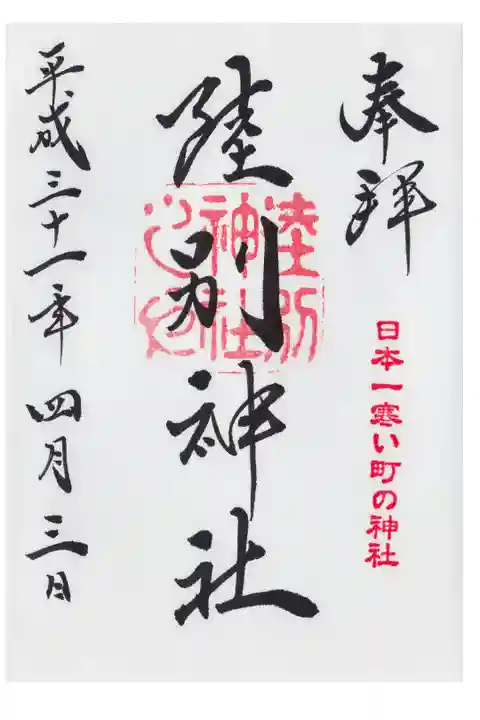 奉拜
日本一寒い町の神社
陸別神社
陸別
神社
之印
平成三十一年四月三日